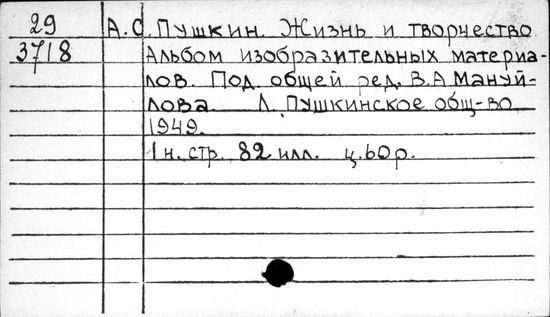 29 А.С. Пушкин. Жизнь и творчество
3718 Альбом изобразительных материа-
лов. Под общей ред. В.А Мануй-
лова. Л. Пушкинское общ-во
1949.
1 н. стр. 82 илл. ц. 60 р.